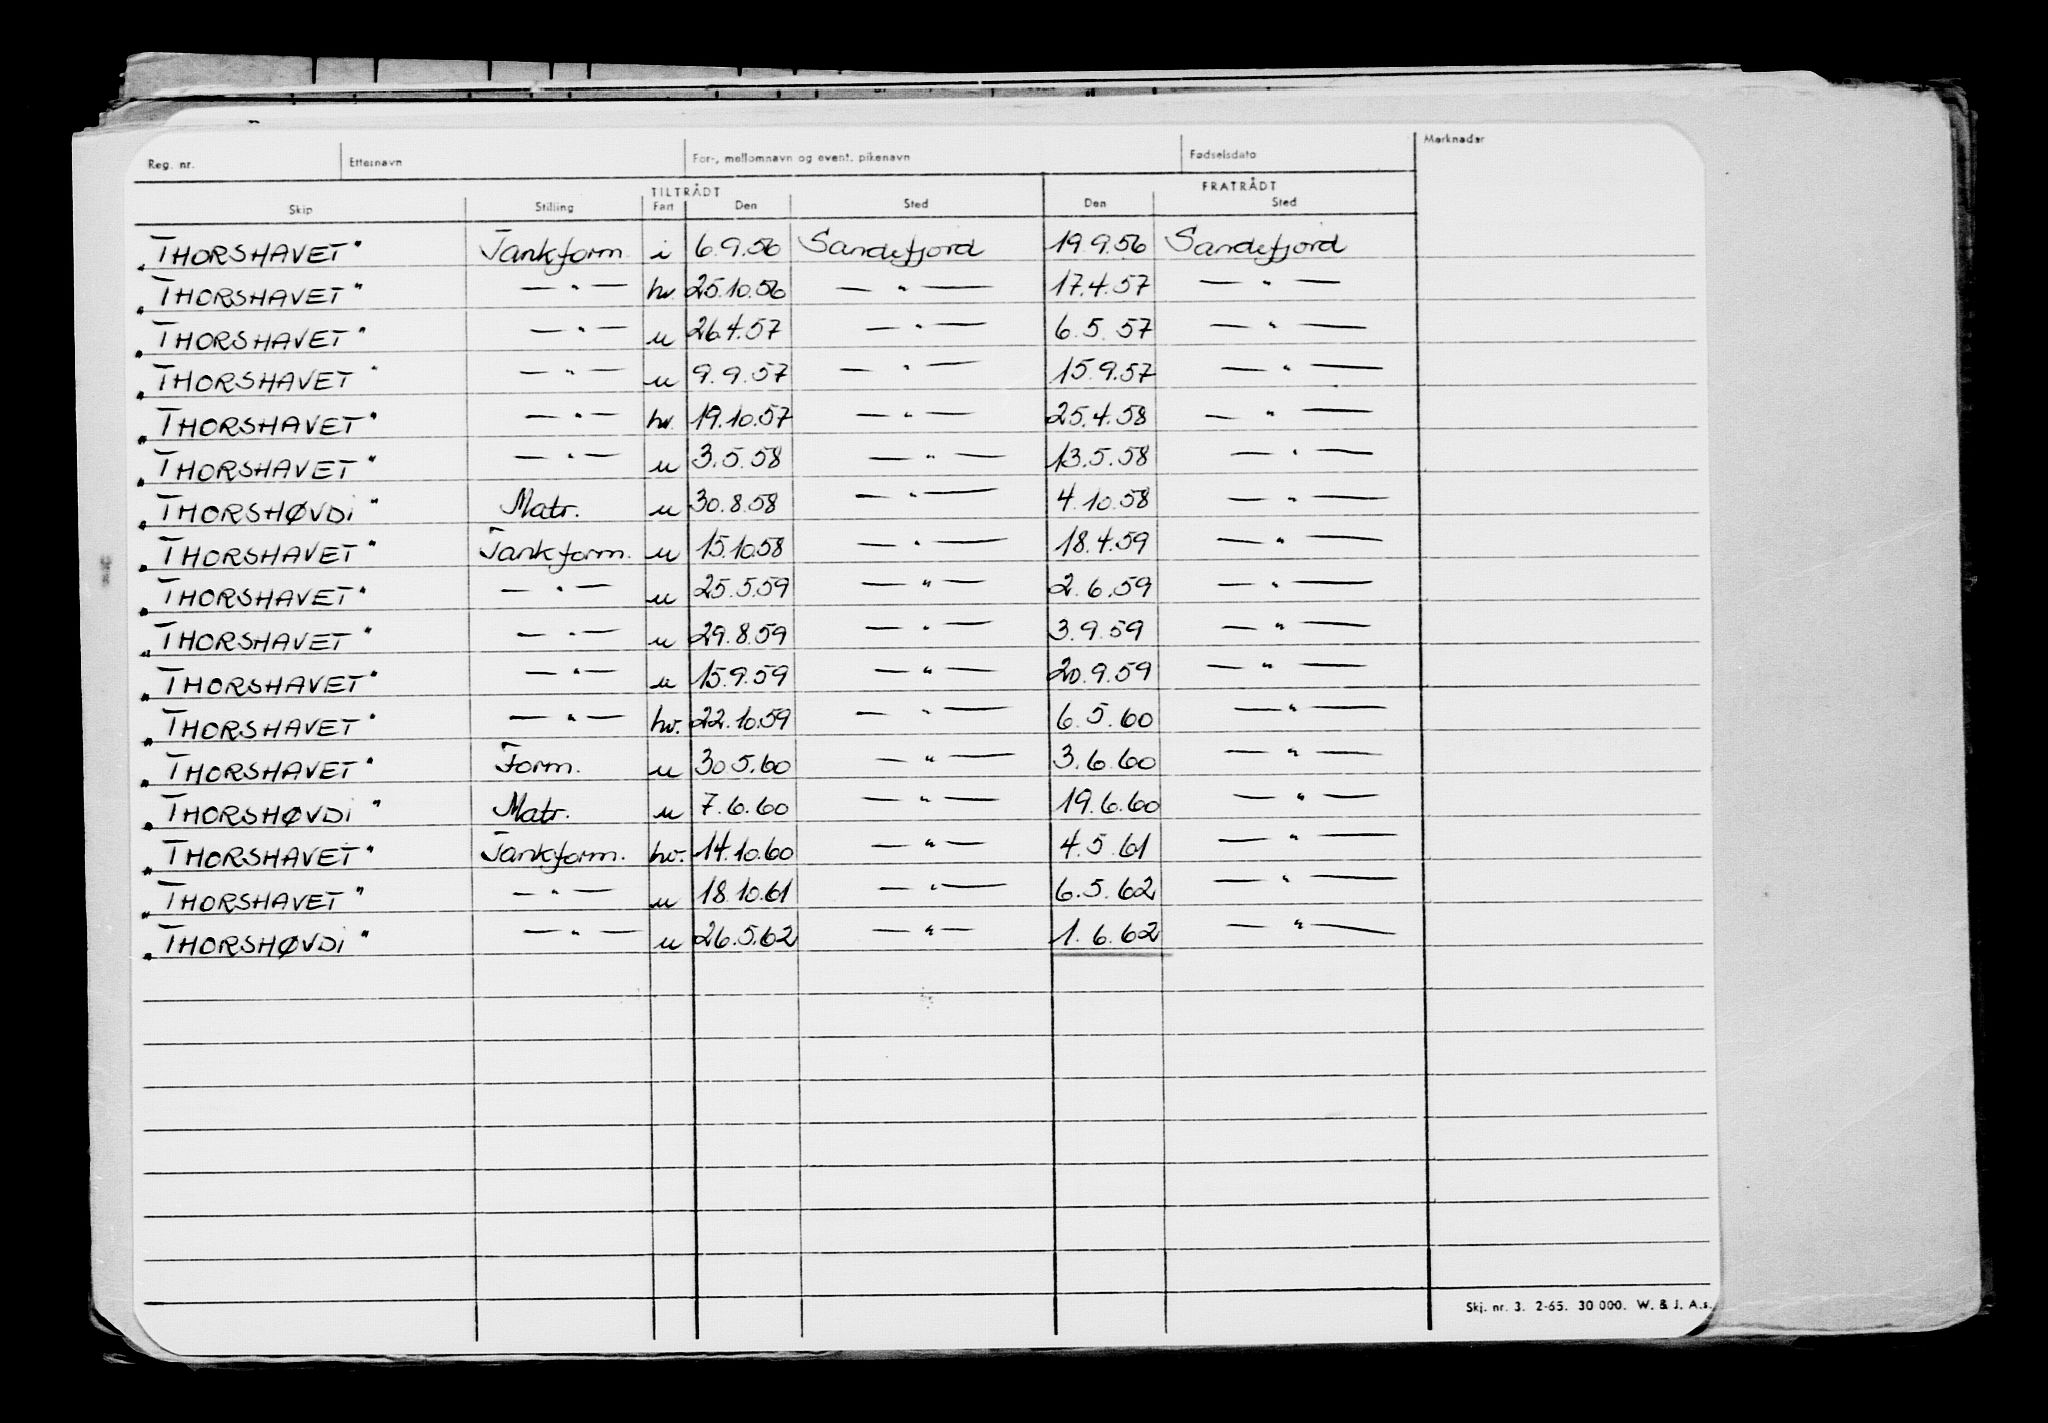 Reg. nr. Etternavn For-, mellomnavn og event. pikenavn Fødselsdato Merknader
TILTRÅDT FRATRÅDT
Skip Stilling Fart Den Sted Den Sted
„THORSHAVET" Tankform. i 6.9.56 Sandefjord 19.9.56 Sandefjord
„THORSHAVET" —"— hv. 25.10.56 —"— 17.4.57 —"—
„THORSHAVET" —"— u 26.4.57 —"— 6.5.57 —"—
„THORSHAVET" —"— u 9.9.57 —"— 15.9.57 —"—
„THORSHAVET" —"— hv. 19.10.57 —"— 25.4.58 —"—
„THORSHAVET" —"— u 3.5.58 —"— 13.5.58 —"—
„THORSHØVDI" Matr. u 30.8.58 —"— 4.10.58 —"—
„THORSHAVET" Tankform. u 15.10.58 —"— 18.4.59 —"—
„THORSHAVET" —"— u 25.5.59 —"— 2.6.59 —"—
„THORSHAVET" —"— u 29.8.59 —"— 3.9.59 —"—
„THORSHAVET" —"— u 15.9.59 —"— 20.9.59 —"—
„THORSHAVET" —"— hv. 22.10.59 —"— 6.5.60 —"—
„THORSHAVET" Form. u 30 5.60 —"— 3.6.60 —"—
„THORSHØVDI" Matr. u 7.6.60 —"— 19.6.60 —"—
„THORSHAVET" Tankform. hv. 14.10.60 —"— 4.5.61 —"—
„THORSHAVET" —"— u 18.10.61 —"— 6.5.62 —"—
„THORSHØVDI" —"— u 26.5.62 —"— 1.6.62 —"—
Skj. nr. 3. 2-65. 30 000. W. & J. A.s.